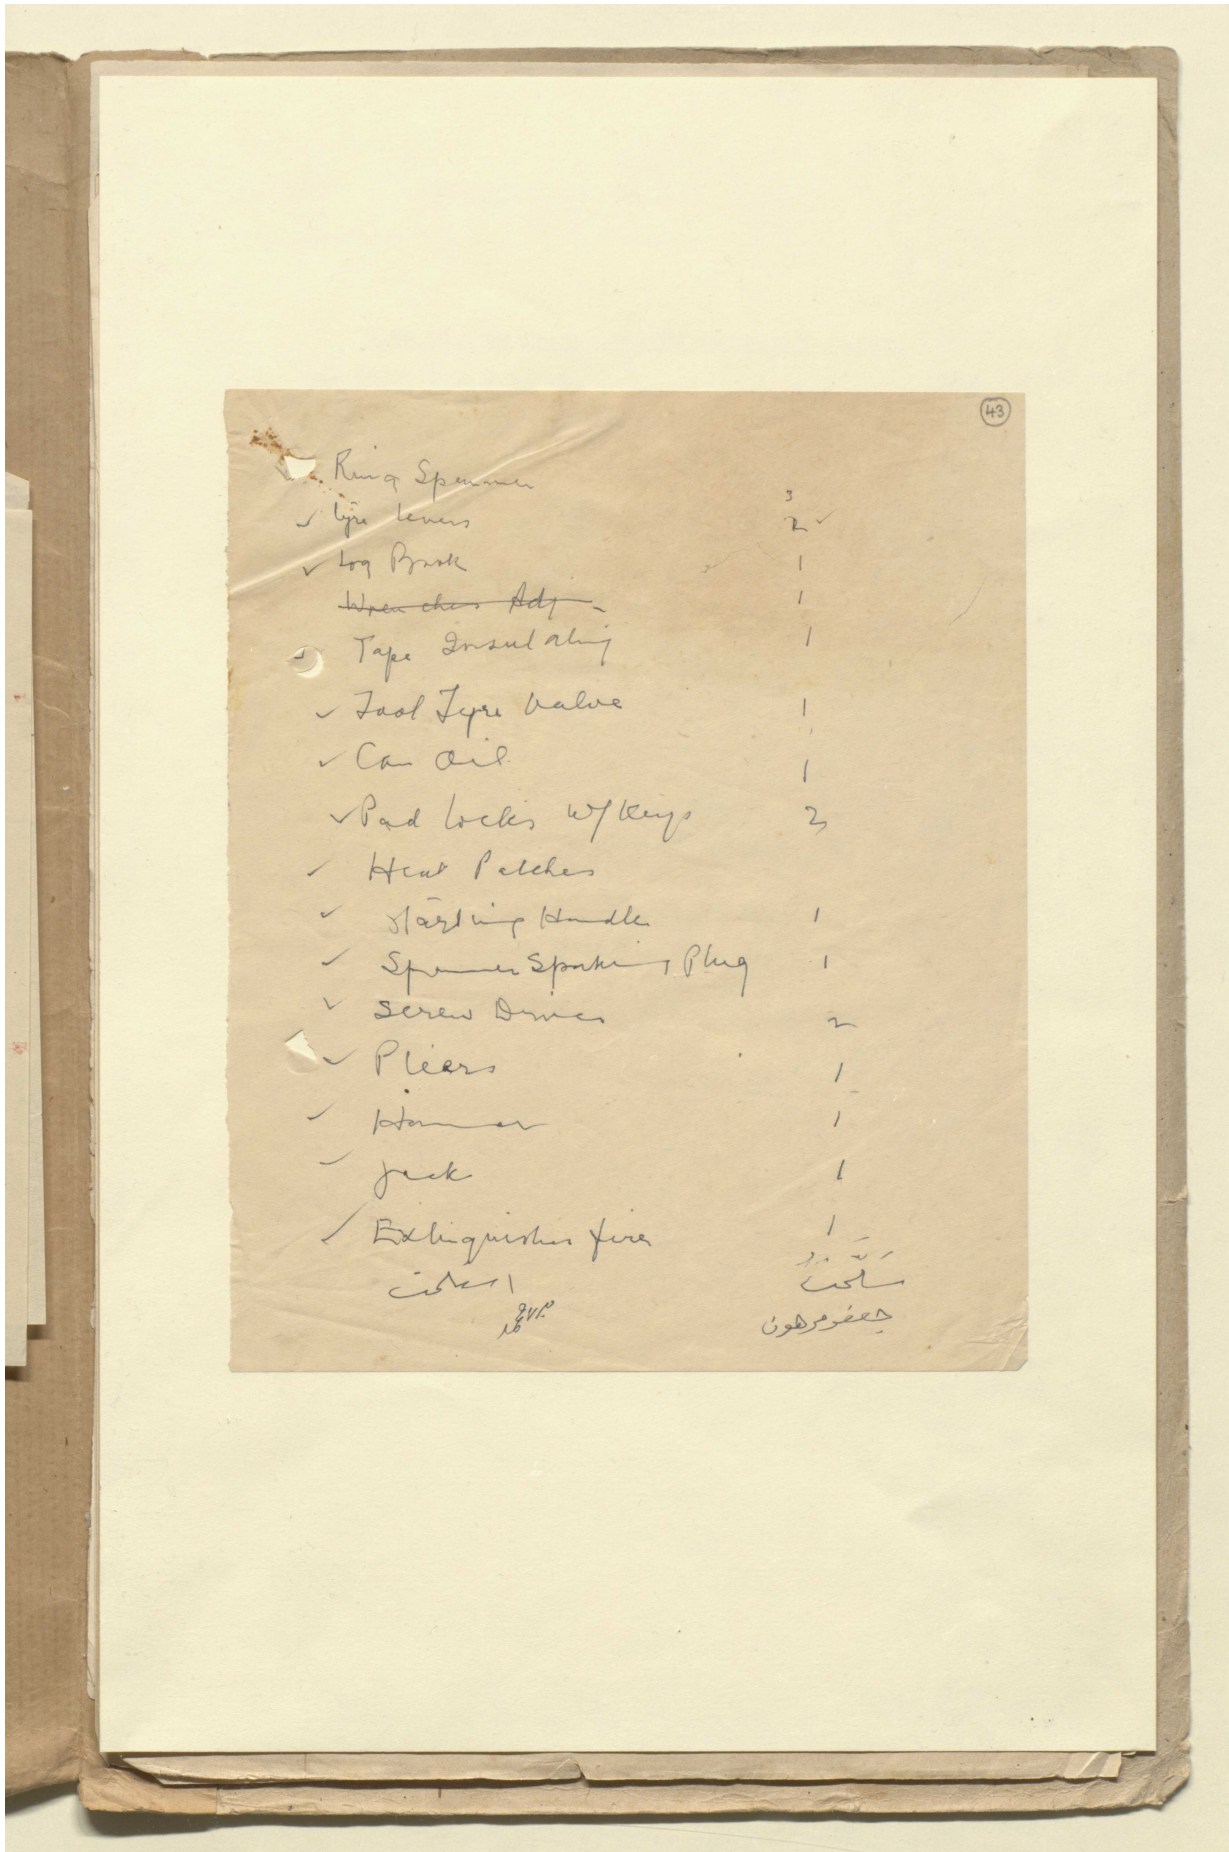 43
Ring Spanner
3
Tyre levers 2
Log Book 1
Wrenches Adj - 1
Tape Insulating 1
Tool Tyre Valve 1
Can Oil 1
Pad locks w/ Keys 2
Heat Patches
Starting Handle 1
Spanner Sparking Plug 1
Screw Driver 2
Pliers 1
Hammer 1
Jack 1
Extinguisher fire 1
استلمت سلمت
جعفر مرهون